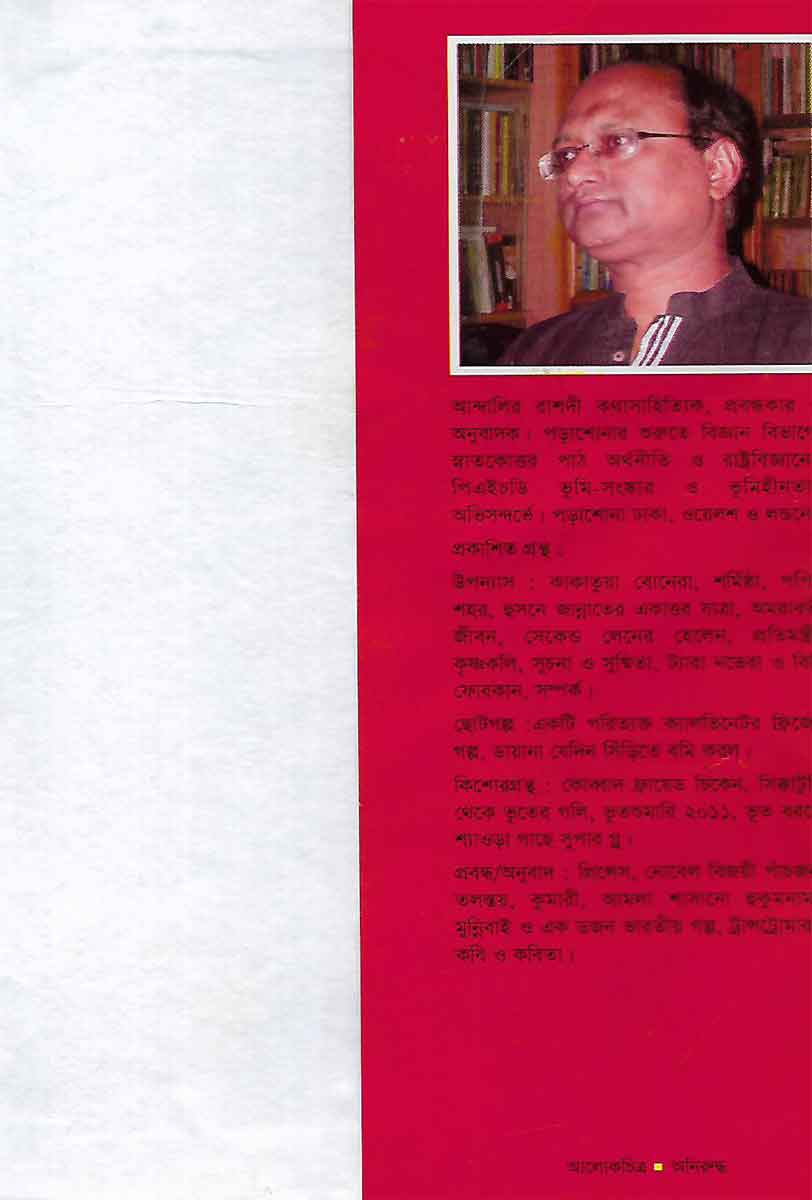 আন্দালিব রাশদী কথাসাহিত্যিক, প্রবন্ধকার
অনুবাদক। পড়াশোনার শুরুতে বিজ্ঞান বিভাগে
স্নাতকোত্তর পাঠ অর্থনীতি ও রাষ্ট্রবিজ্ঞানে
পিএইচডি ভূমি-সংস্কার ও ভূমিহীনতা
অভিসন্দর্ভে। পড়াশোনা ঢাকা, ওয়েলশ ও লন্ডনে
প্রকাশিত গ্রন্থ :
উপন্যাস : কাকাতুয়া বোনেরা, শর্মিষ্ঠা,
শহর, হুসনে জান্নাতের একাত্তর যাত্রা,
জীবন, সেকেন্ড লেনের হেলেন, প্রতিমন্ত্রী
কৃষ্ণকলি, সূচনা ও সুস্মিতা, ট্যারা নভেরা ও
ফোরকান, সম্পর্ক।
ছোটগল্প :একটি পরিত্যক্ত ক্যালভিনেটর ফ্রিজে
গল্প, ডায়ানা যেদিন সিঁড়িতে বমি করল।
কিশোরগ্রন্থ : কোব্বাদ ফ্রায়েড চিকেন,
থেকে ভূতের গলি, ভূতশুমারি ২০১১, ভূত
শ্যাওড়া গাছে সুপার গ্লু।
প্রবন্ধ/অনুবাদ : প্রিন্সেস, নোবেল বিজয়ী
তলস্তয়, কুমারী, আমলা শাসানো হুকুমনামা
মুন্নিবাই ও এক ডজন ভারতীয় গল্প, ট্রান্সট্রোমার
কবি ও কবিতা।
আলোকচিত্র ▪ অনিরুদ্ধ